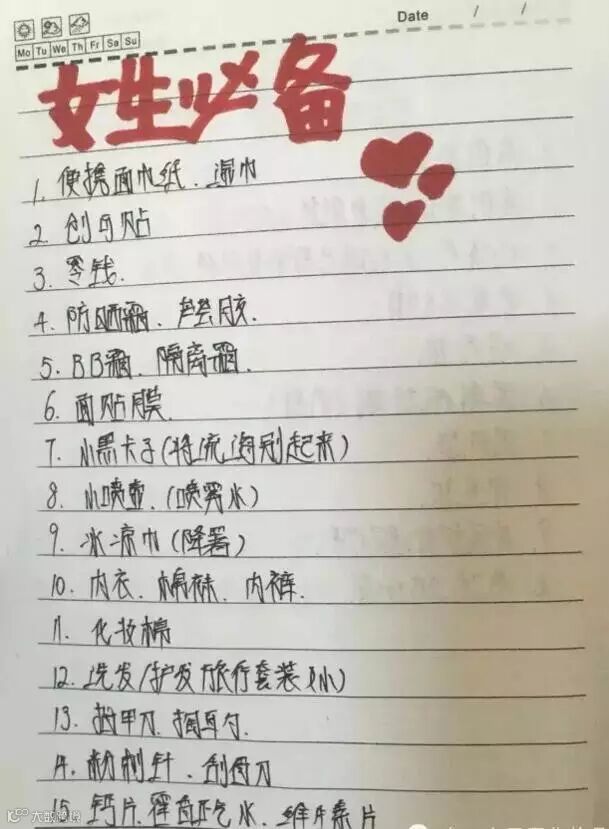 Date / /
Mo Tu We Th Fr Sa Su
女生必备
1. 便携面巾纸、湿巾
2. 创可贴
3. 零钱.
4. 防晒霜、芦荟胶.
5. BB霜、隔离霜.
6. 面贴膜.
7. 小黑卡子(将流海别起来)
8. 小喷壶.(喷雾水)
9. 冰凉巾(降暑)
10. 内衣、棉袜、内裤.
11. 化妆棉
12. 洗发/护发旅行套装(小)
13. 指甲刀、掏耳勺.
14. 粉刺针、刮眉刀
15. 钙片、藿香正气水、维生素片